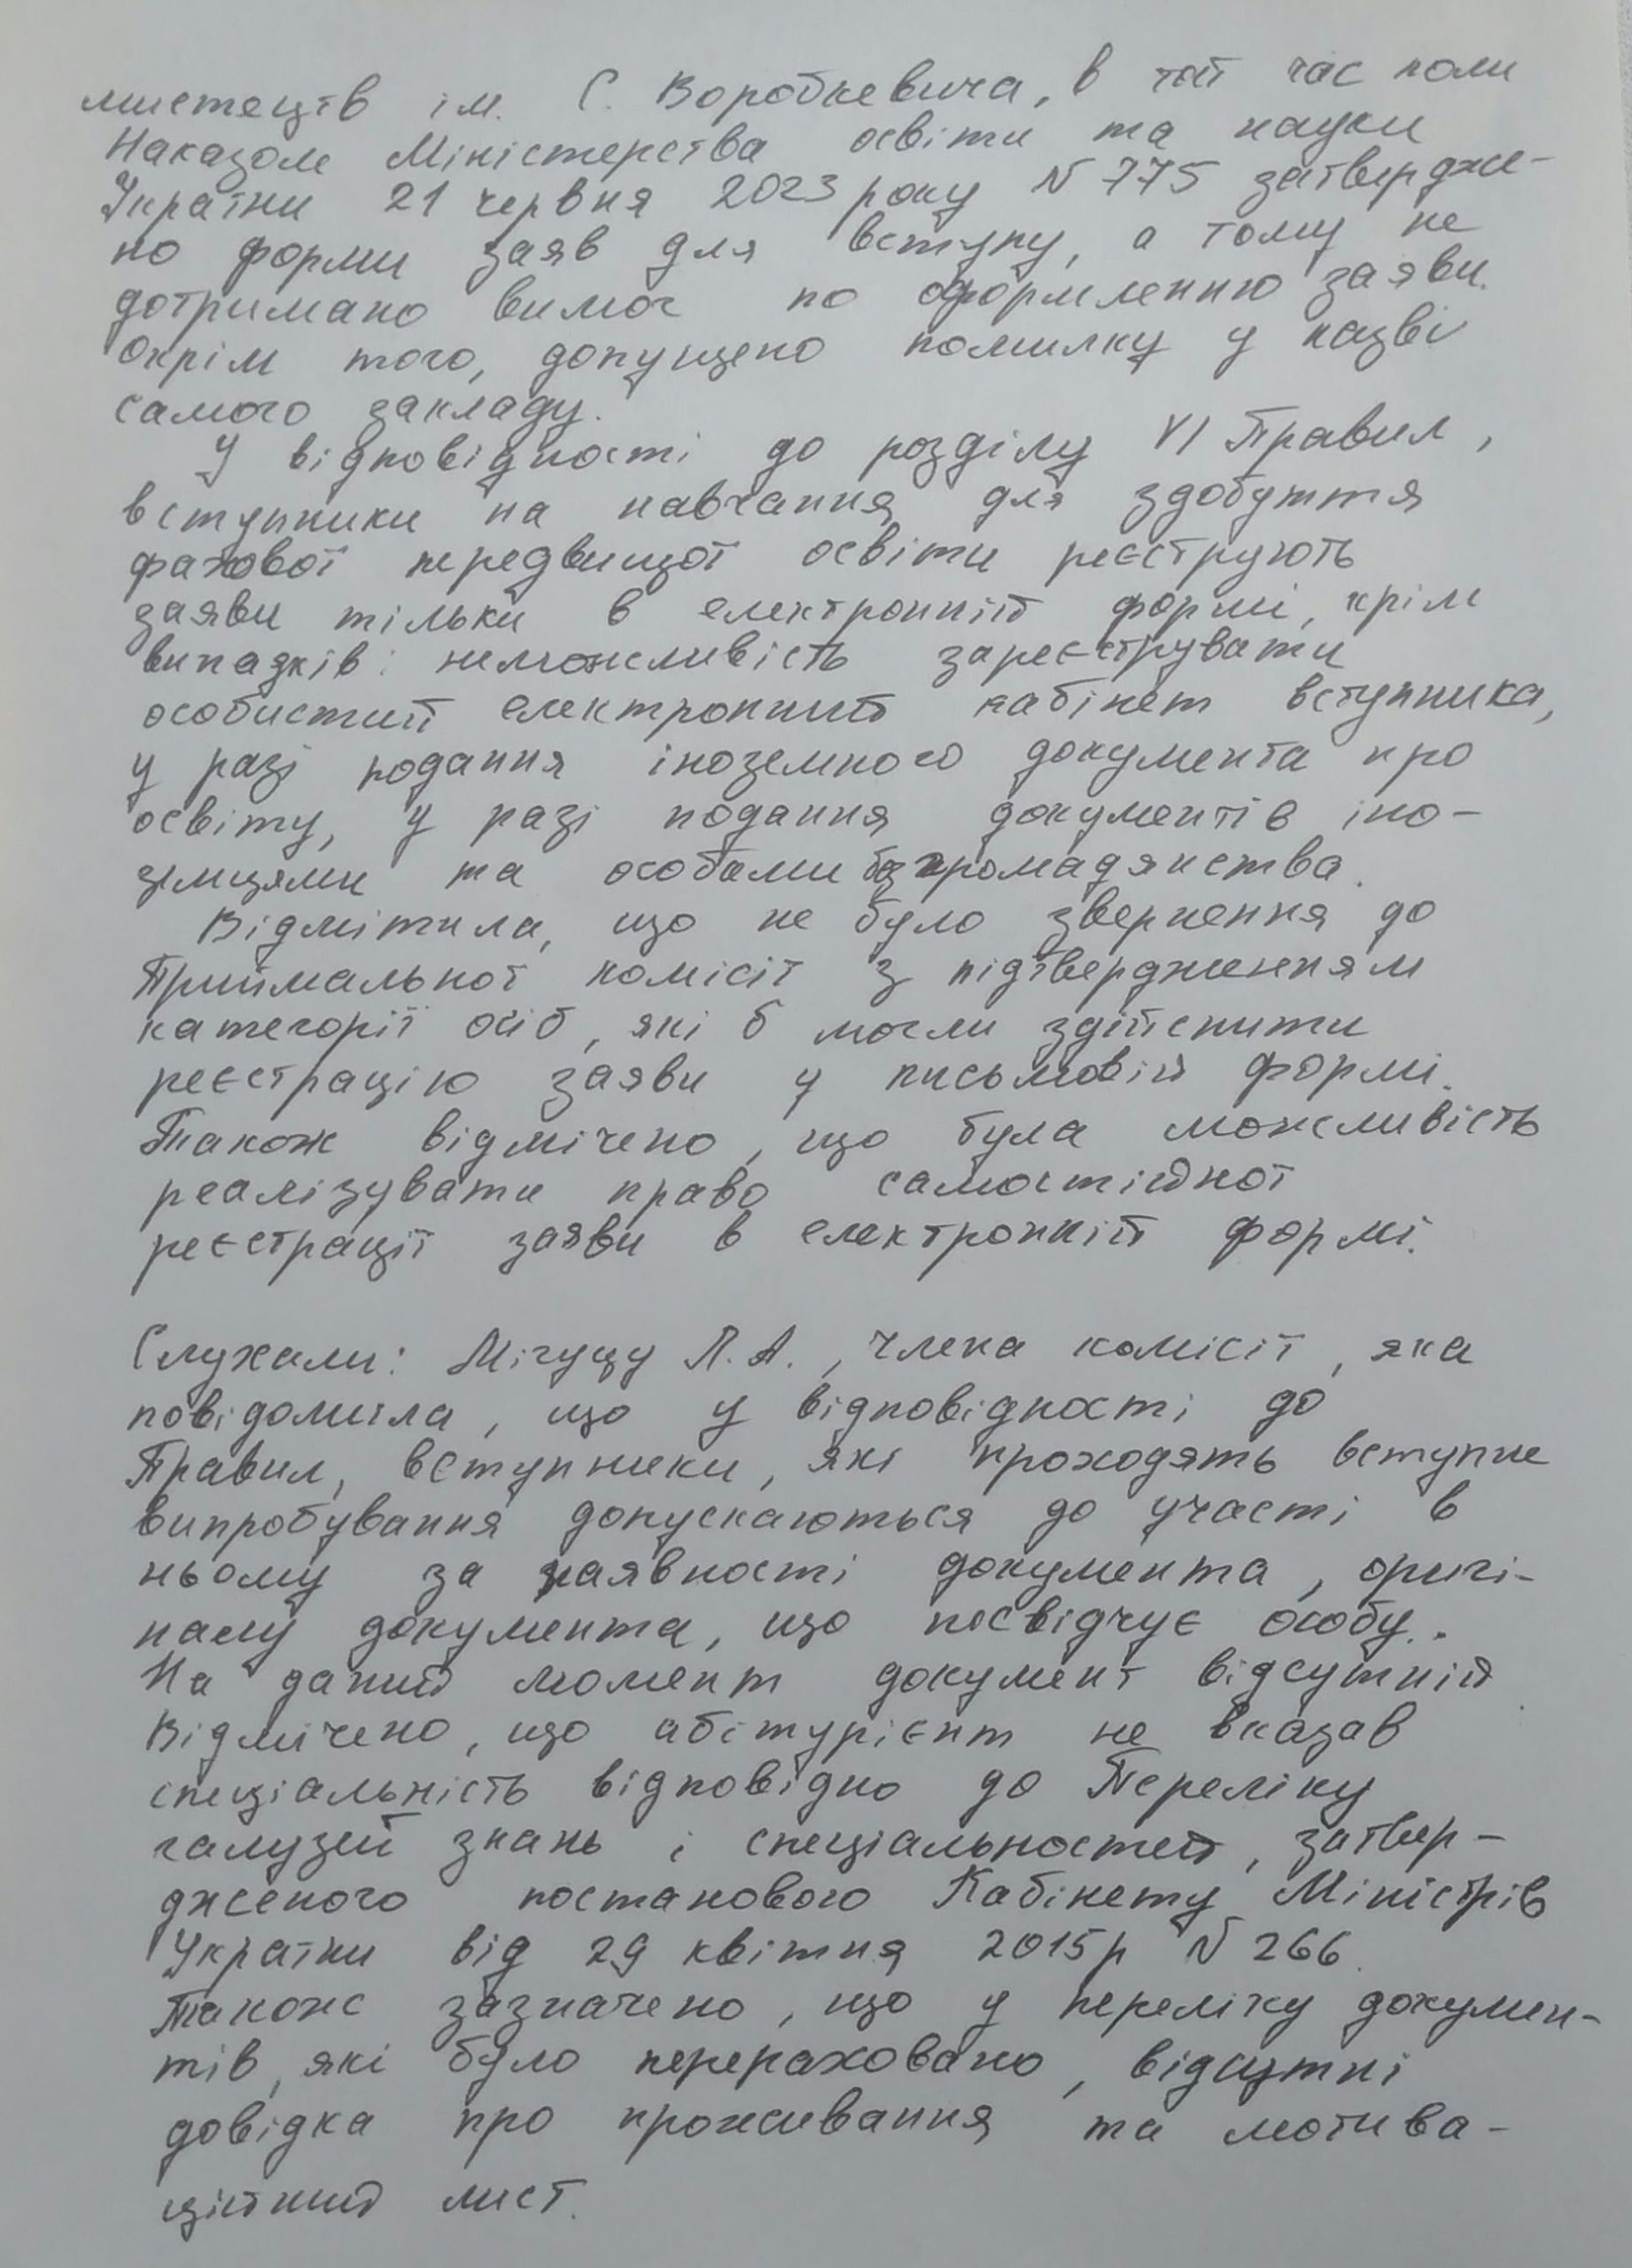 мистецтв ім. С. Воробкевича, в той час коли
Наказом Міністерства освіти та науки
України 21 червня 2023 року N 775 затвердже-
но форми заяв для вступу, а тому не
дотримано вимог по оформленню заяви.
Окрім того, допущено помилку у назві
самого закладу.
У відповідності до розділу VI Правил,
вступники на навчання для здобуття
фахової передвищої освіти реєструють
заяви тільки в електронній формі, крім
випадків: неможливість зареєструвати
особистий електронний кабінет вступника,
у разі подання іноземного документа про
освіту, у разі подання документів іно-
земцями та особами без громадянства.
Відмітила, що не було звернення до
Приймальної комісії з підтвердженням
категорії осіб, які б могли здійснити
реєстрацію заяви у письмовій формі.
Також відмічено, що була можливість
реалізувати право самостійної
реєстрації заяви в електронній формі.
Слухали: Мігуцу Л.А., члена комісії, яка
повідомила, що у відповідності до
Правил, вступники, які проходять вступне
випробування допускаються до участі в
ньому за наявності документа, оригі-
налу документа, що посвідчує особу.
На даний момент документ відсутній
Відмічено, що абітурієнт не вказав
спеціальність відповідно до Переліку
галузей знань і спеціальностей, затвер-
дженого постановою Кабінету Міністрів
України від 29 квітня 2015р N 266.
Також зазначено, що у переліку докумен-
тів, які було перераховано, відсутні
довідка про проживання та мотива-
ційний лист.